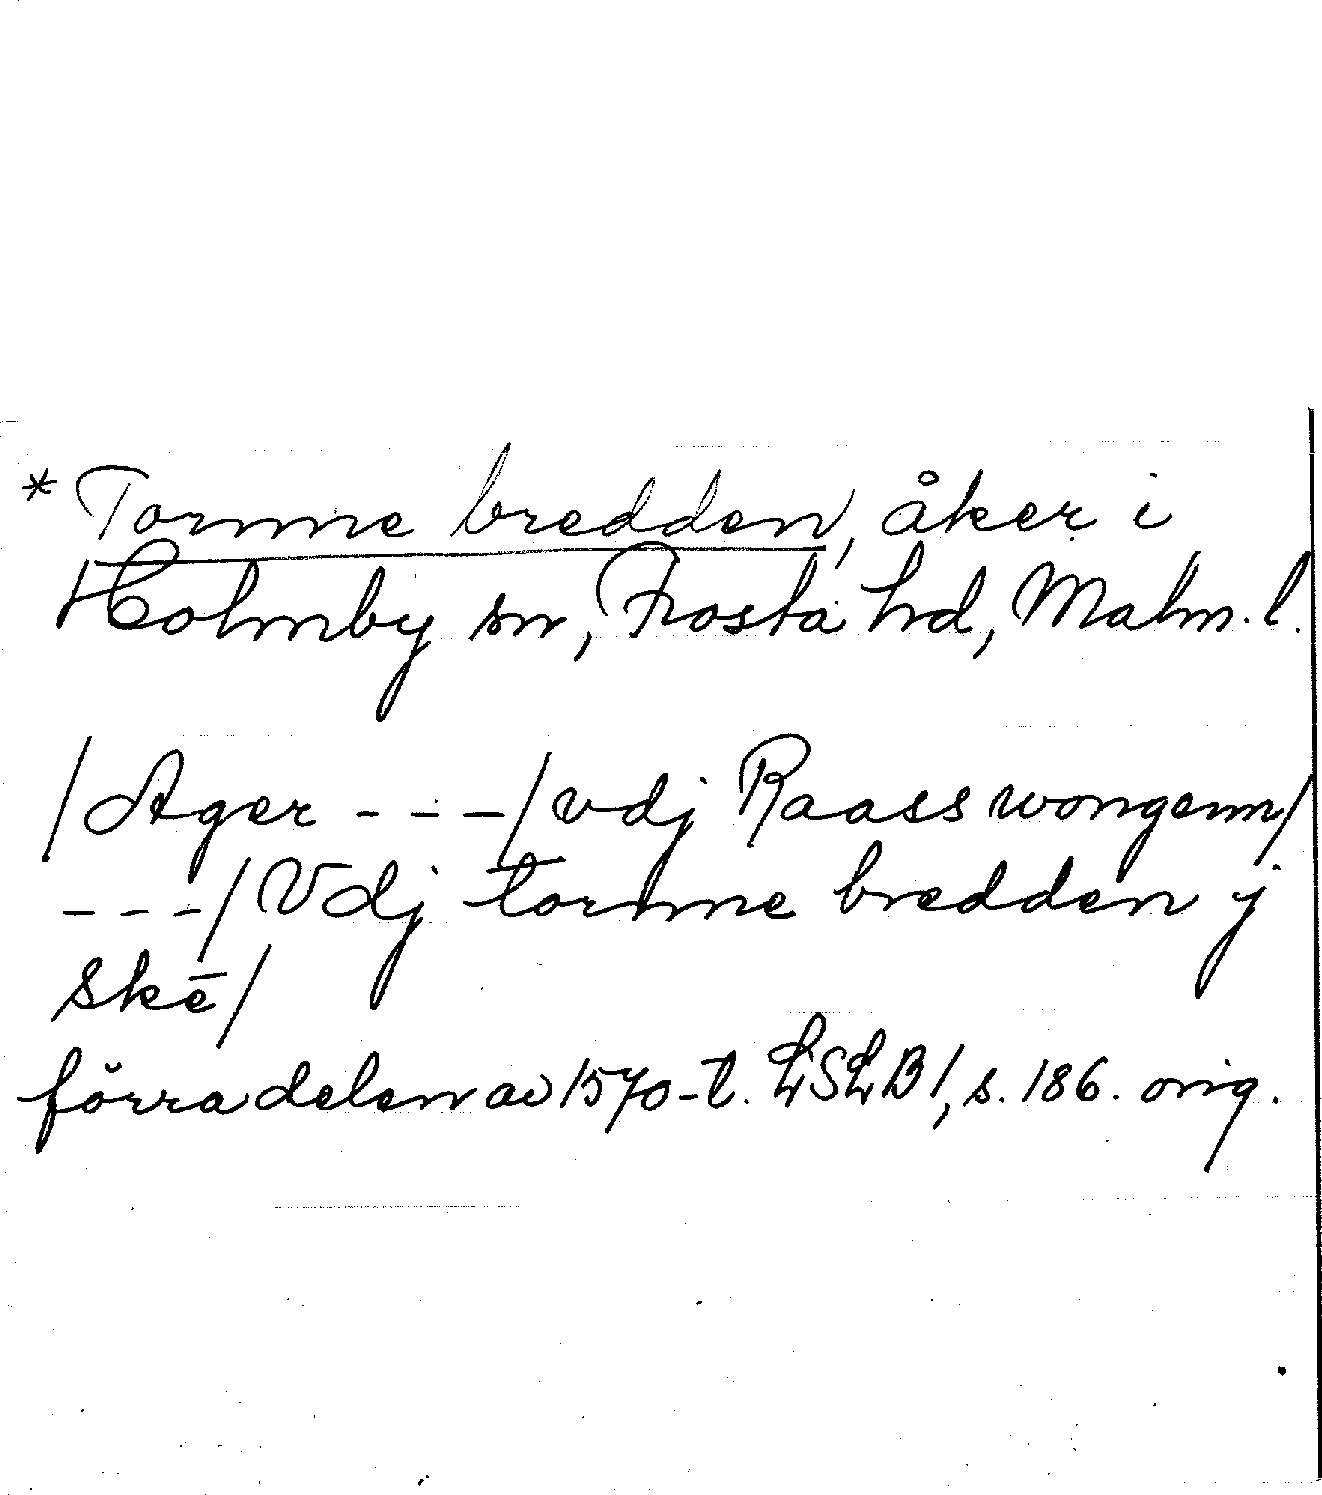 * Tormme bredden, åker i
Holmby sn, Frosta hd, Malm. l.
/Ager - - -/ vdj Raass wongenn/
- - -/ Vdj tormme bredden j
skē/
förra delen av 1570-t. LSLB 1, s. 186. orig.